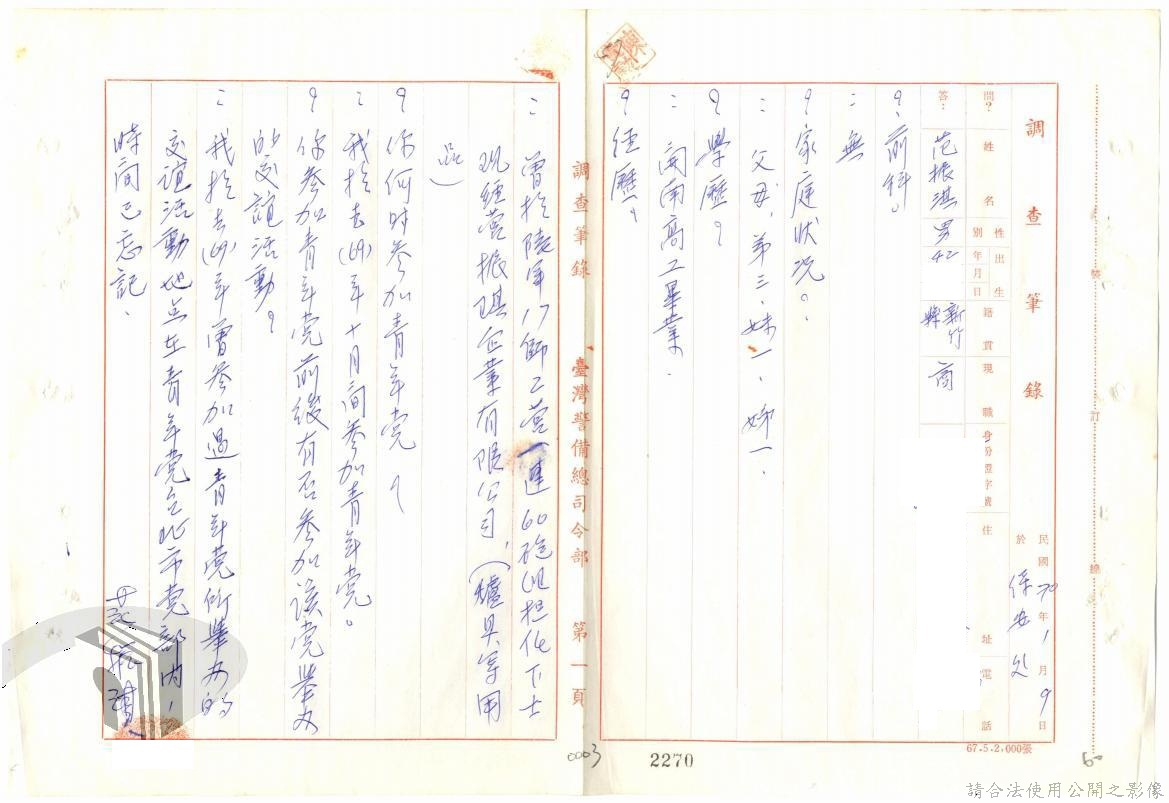 調查筆錄
民國70年1月9日
於保安處
問：姓名 性別 出生年月日 籍貫 現職 身分證字號 住址 電話
答：范振淇 男 42 新竹縣 商
？前科。
：無
？家庭狀況。
：父母，弟三．妹一．姊一．
？學歷？
：開南高工畢業．
？經歷？
裝訂線
67.5.2,000張
調查筆錄 臺灣警備總司令部 第一頁
：曾於陸軍17師乙營一連60砲組担任下士
現經營振琪企業有限公司，(爐具等用
品)
？你何时参加青年党？
：我於去(69)年十月間参加青年党。
？你参加青年党前後有否参加該党舉办
的交誼活動？
：我於去(69)年曾参加過青年党所舉办的
交誼活動地点在青年党台北市党部内，
時間已忘記．
0003
2270
60
請合法使用公開之影像